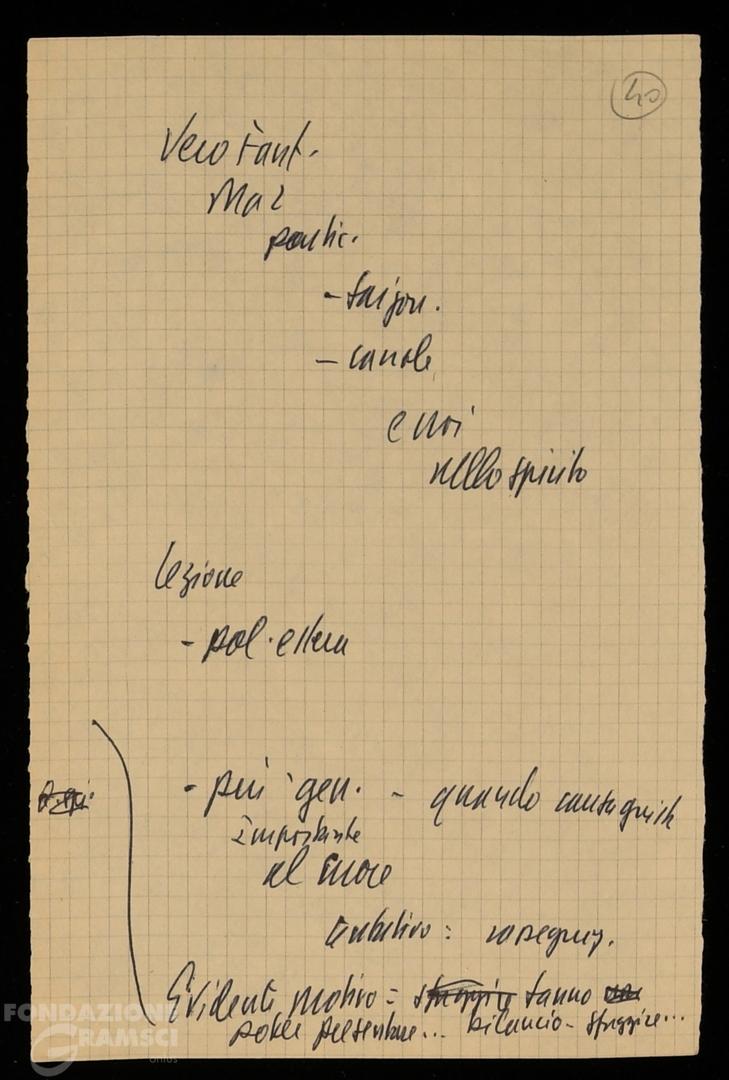 40
Vero Fant.
Ma 2
politic.
- Saigon.
- canale
e noi
nello spirito
lezione
- pol. estera
- più gen. - quando causa giusta
importante
al cuore
tentativo: rassegnaz.
Evidenti motivo = sfuggire fanno
poter presentare... bilancio - sfuggire...
FONDAZIONE
GRAMSCI
onlus